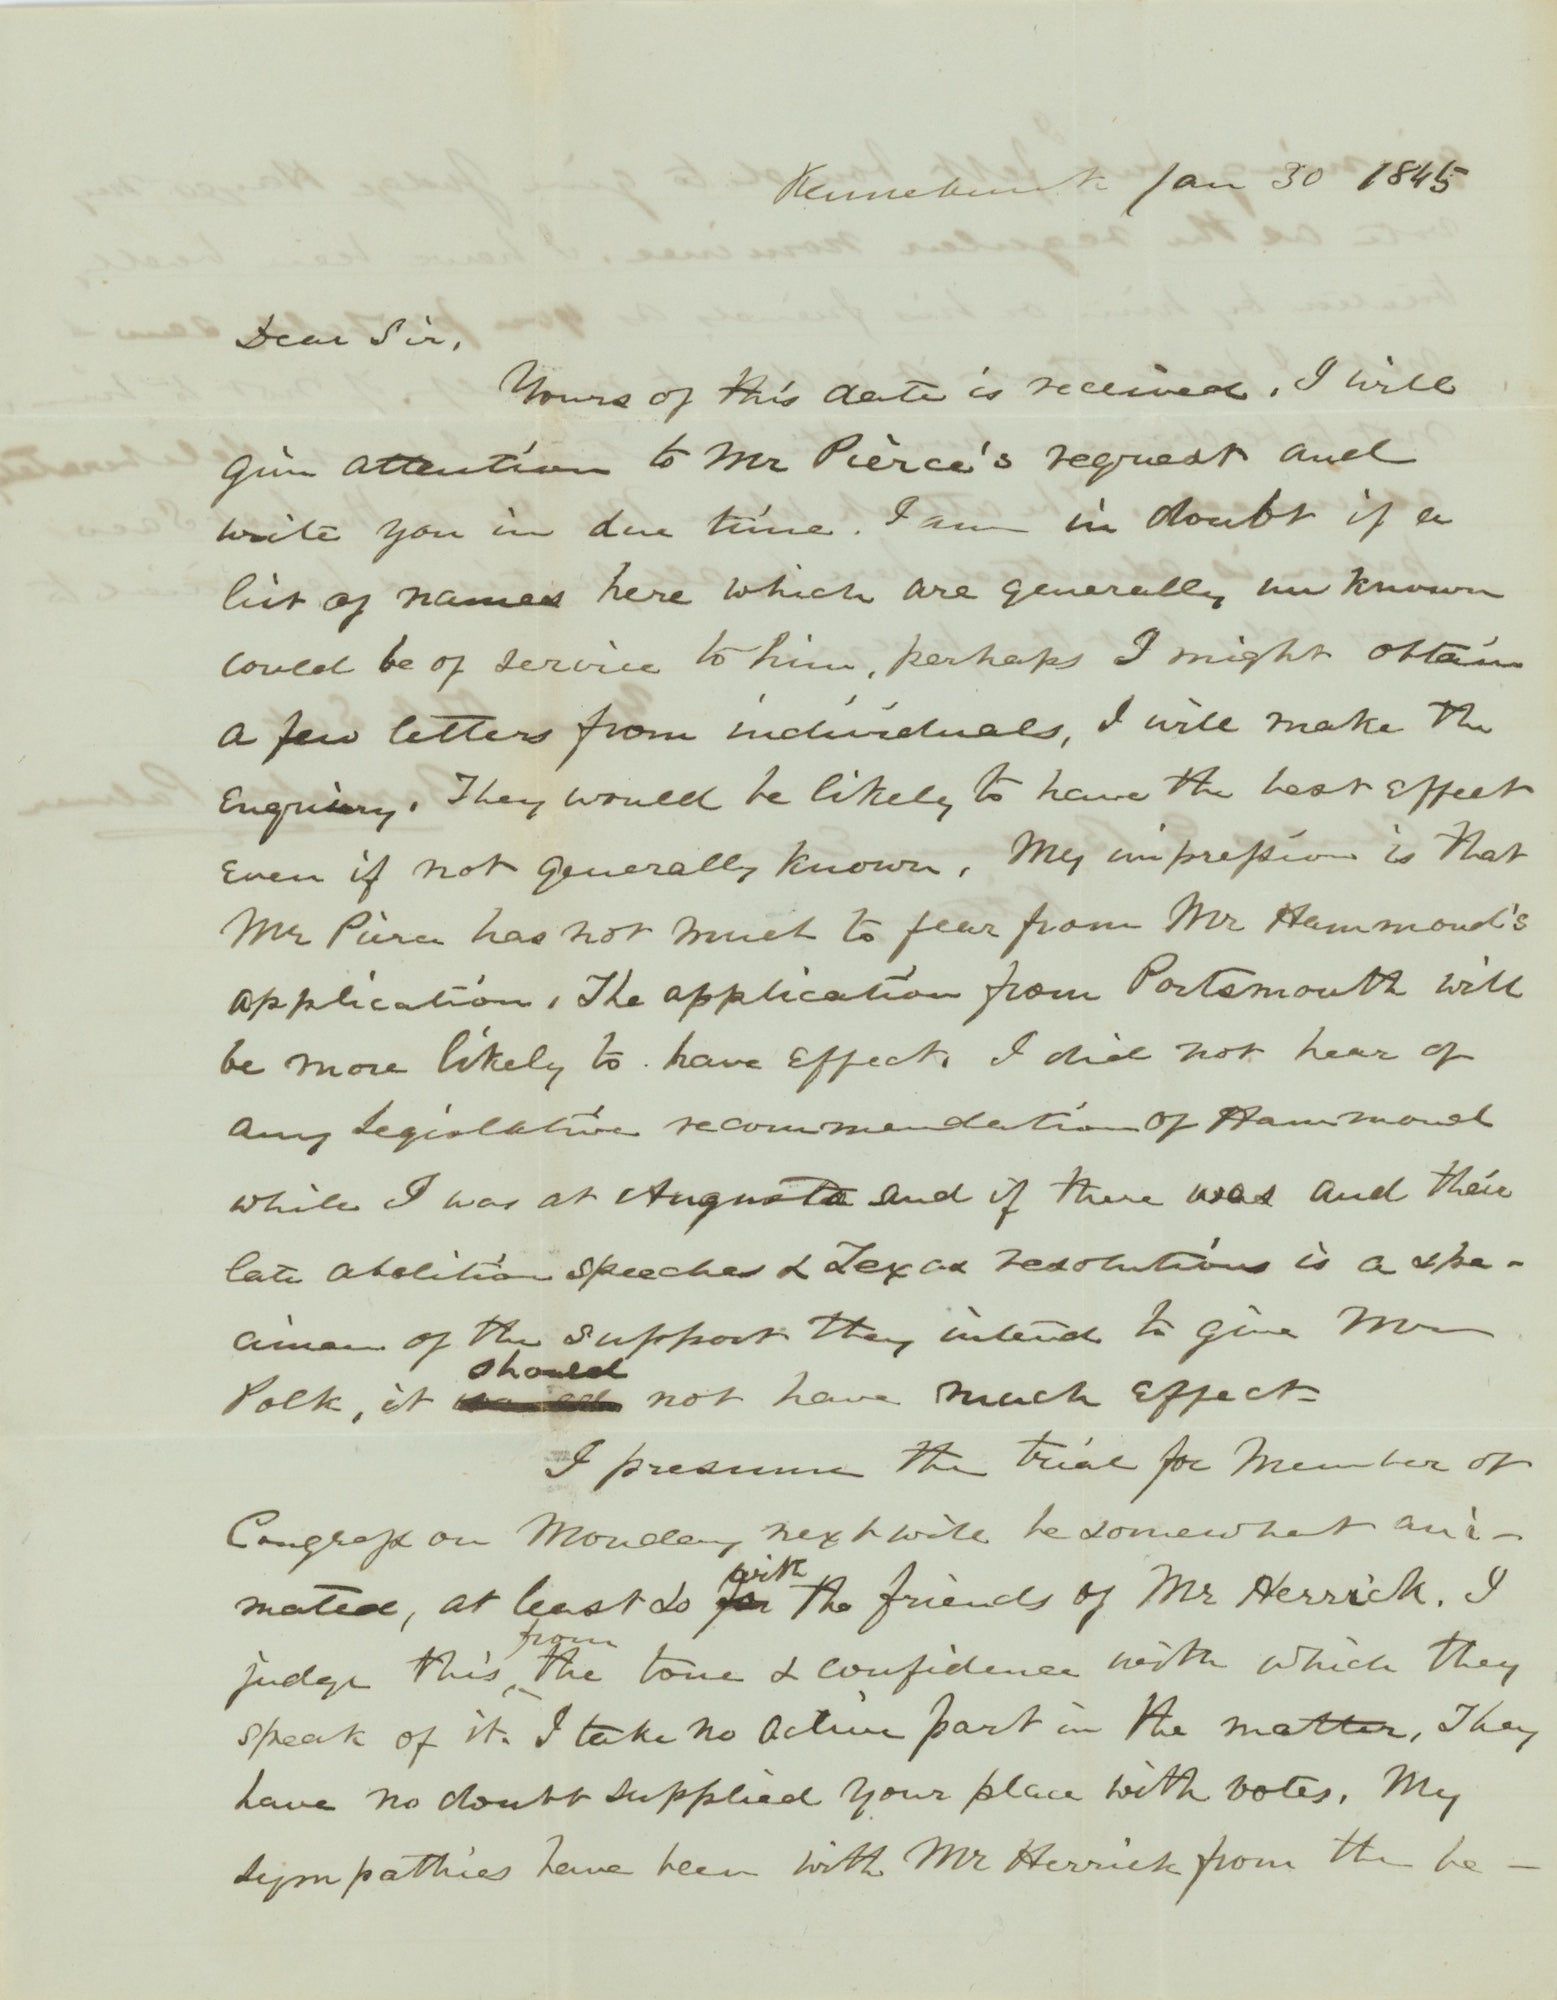 Kennebunk Jan 30 1845
Dear Sir,
Yours of this date is received. I will
give attention to Mr Pierce's request and
write you in due time. I am in doubt if a
list of names here which are generally unknown
could be of service to him, perhaps I might obtain
a few letters from individuals, I will make the
Enquiery. They would be likely to have the best effect
Even if not generally known. My impression is that
Mr Pierce has not much to fear from Mr Hammond's
application. The application from Portsmouth will
be more likely to have Effect. I did not hear of
any Legislative recommendation of Hammond
while I was at Augusta and if there was and their
late abolition speeches & Texas resolutions is a spe-
cimen of the support they intend to give Mr
Polk, it should not have much Effect-
I presume the trial for Member of
Congress on Monday next will be somewhat ani-
mated, at least so with the friends of Mr Herrick. I
judge this, from the tone & confidence with which they
speak of it. I take no active part in the matter, They
have no doubt supplied your place with votes. My
sympathies have been with Mr Herrick from the be-